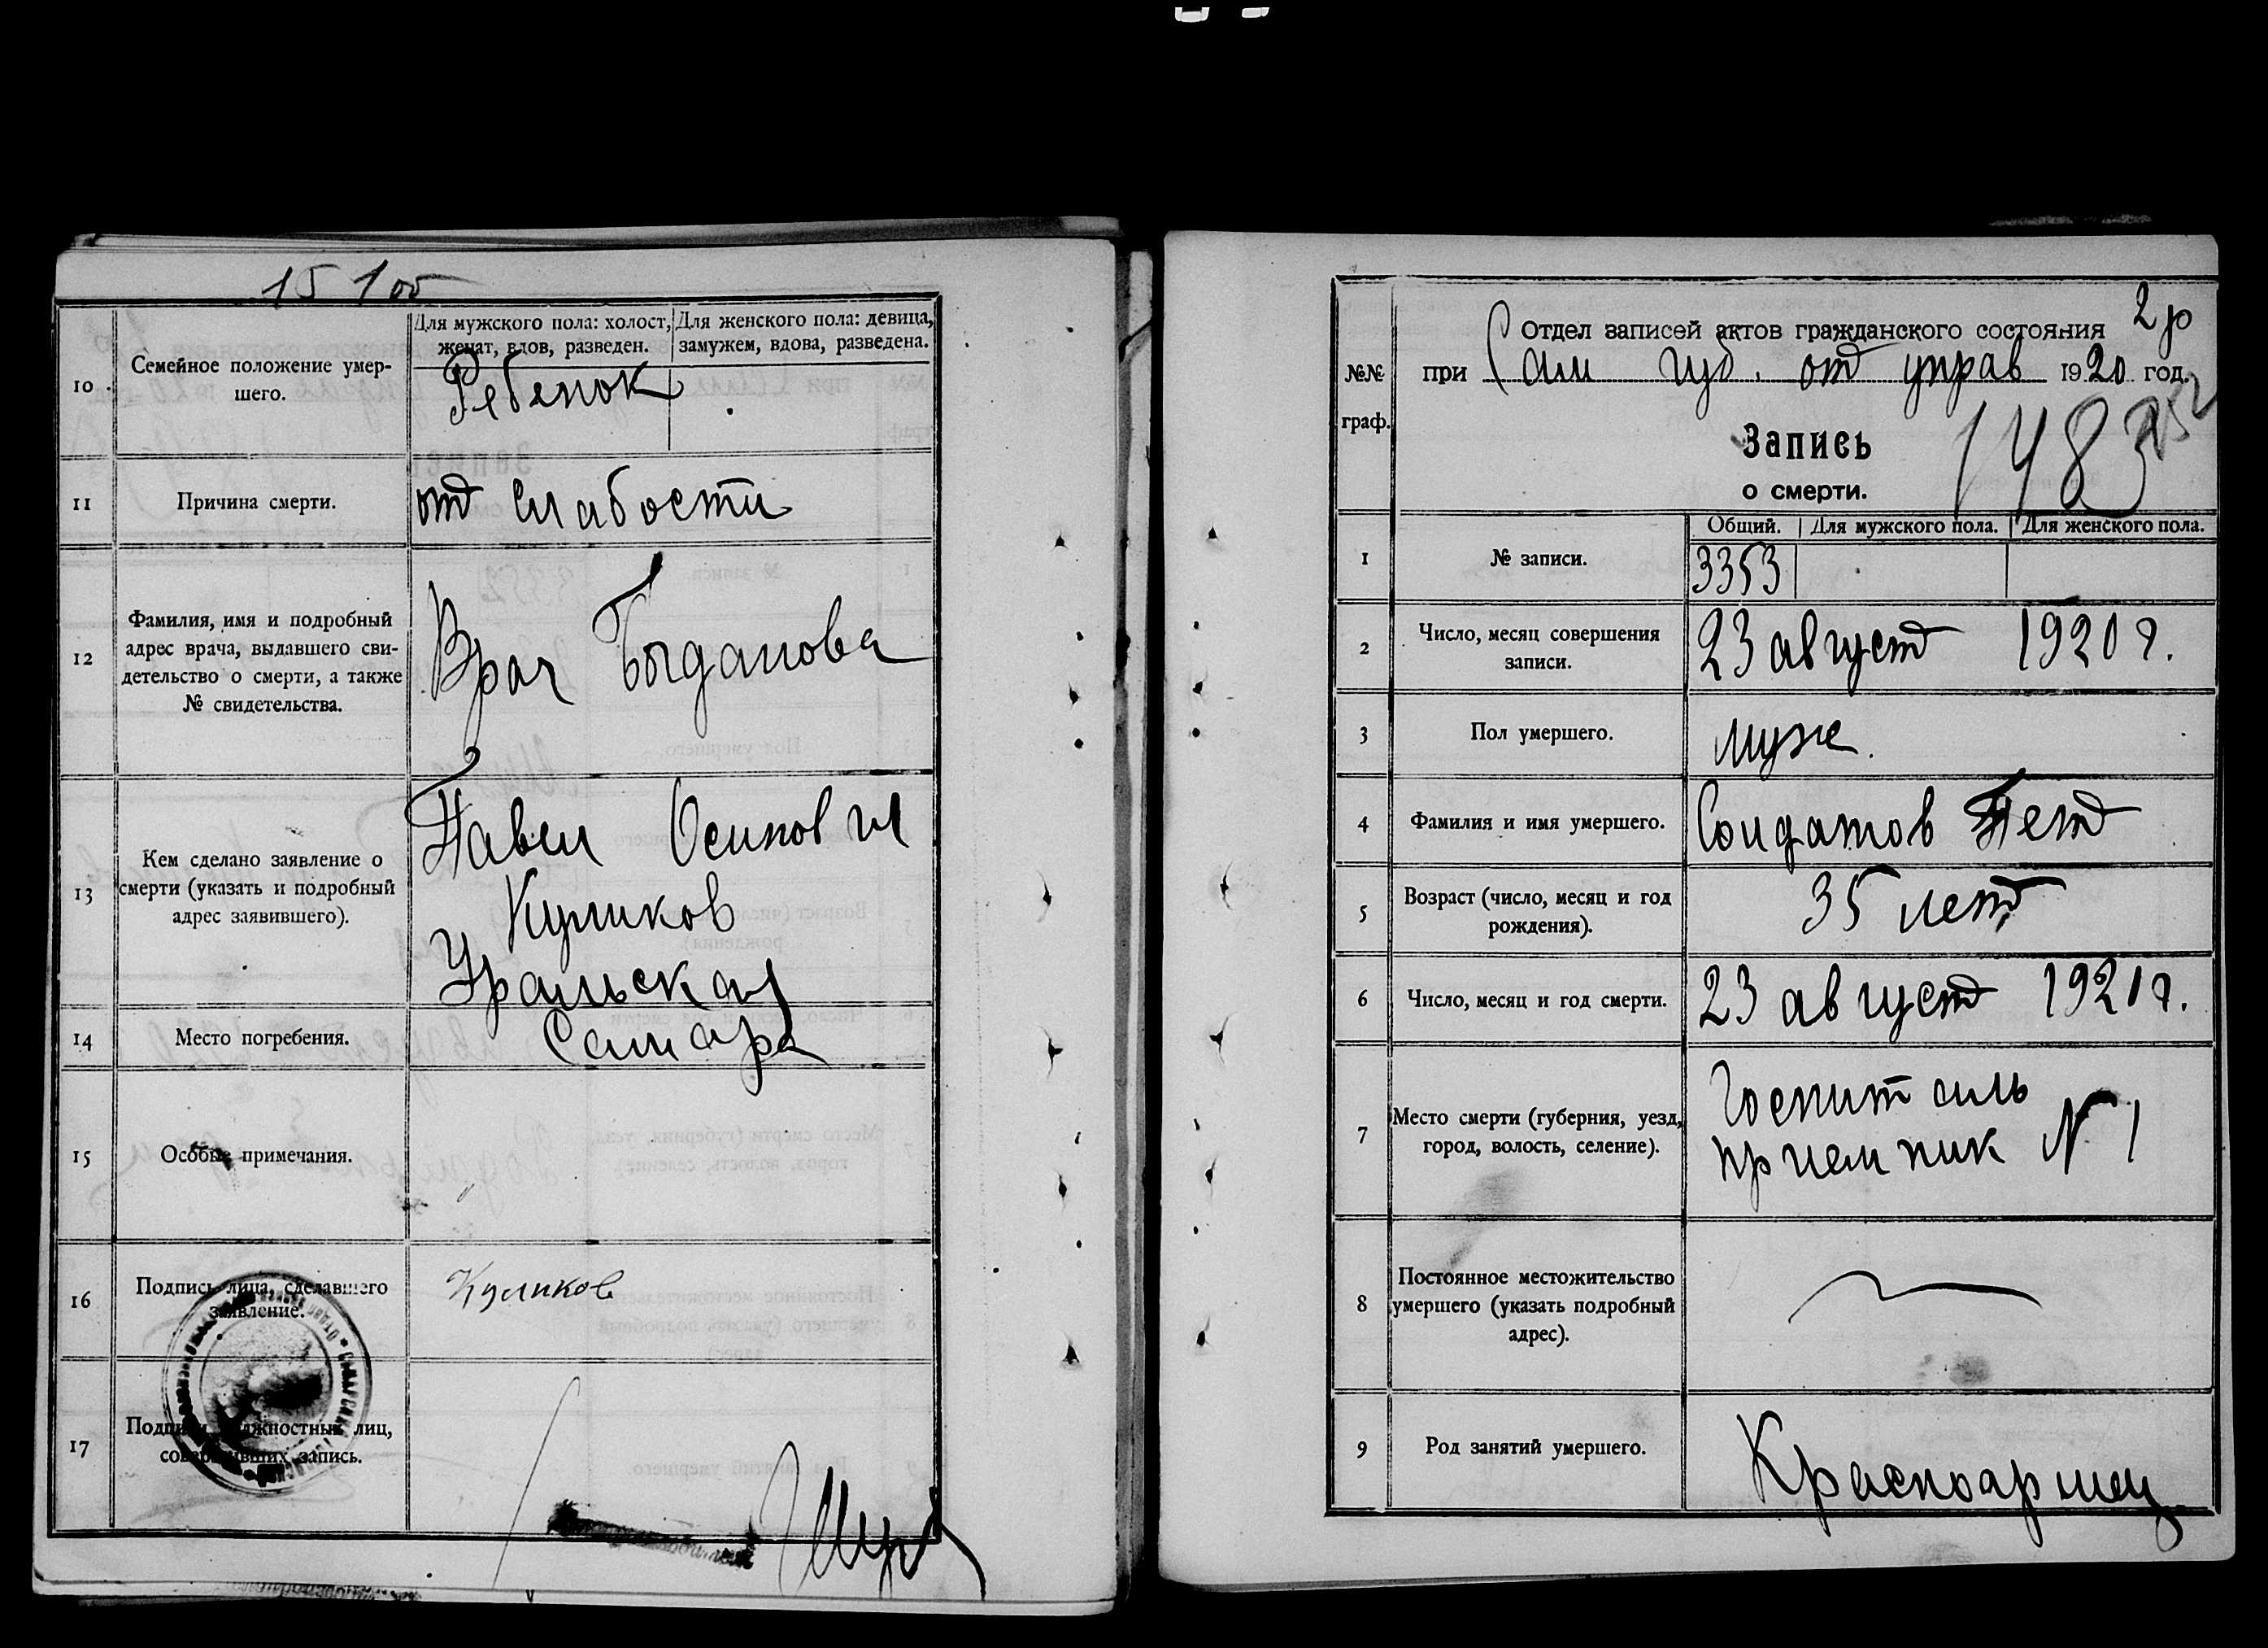 15 1 00
10
Семейное положение умер-
шего.
Для мужского пола: холост,
женат, вдов, разведен.
Для женского пола: девица,
замужем, вдова, разведена.
Ребенок
11
Причина смерти.
от слабости
12
Фамилия, имя и подробный
адрес врача, выдавшего сви-
детельство о смерти, а также
№ свидетельства.
Врач
13
Кем сделано заявление о
смерти (указать и подробный
адрес заявившего).
Павел Осипович
Куликов
Уральская
14
Место погребения.
Самара
15
Особые примечания.
16
Подпись лица, сделавшего
заявление.
Куликов
17
Подписи должностных лиц,
совершивших запись.
№№
граф.
Отдел записей актов гражданского состояния
2р
при Сам губ. от управ 1920 год.
Запись
о смерти.
1483
Общий.
Для мужского пола.
Для женского пола.
1
№ записи.
3353
2
Число, месяц совершения
записи.
23 август 1920 г.
3
Пол умершего.
муж.
4
Фамилия и имя умершего.
Солдатов Пет
5
Возраст (число, месяц и год
рождения).
35 лет
6
Число, месяц и год смерти.
23 август 1920 г.
7
Место смерти (губерния, уезд,
город, волость, селение).
Госпиталь
приемник № 1
8
Постоянное местожительство
умершего (указать подробный
адрес).
9
Род занятий умершего.
Красноармец